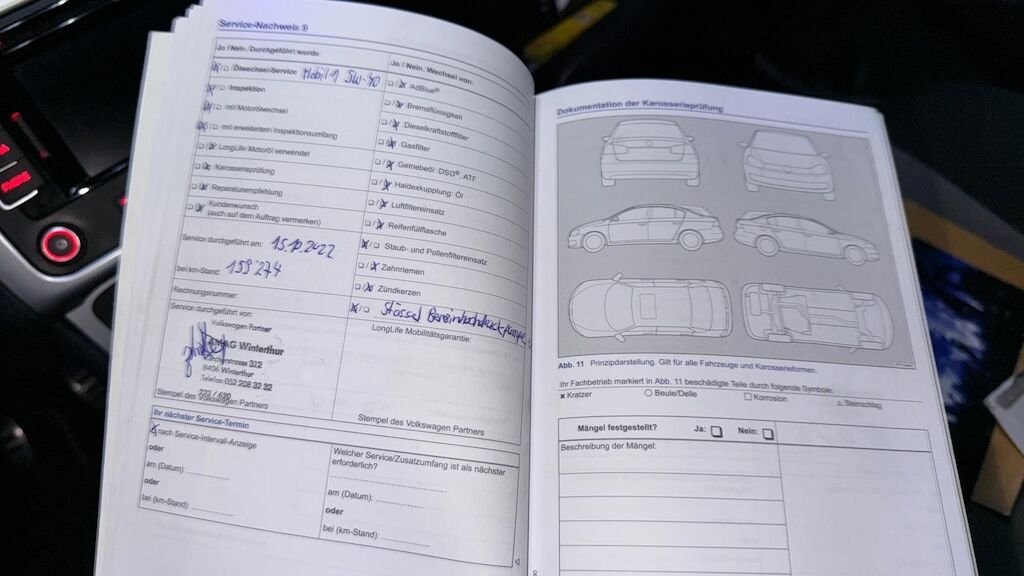 Service-Nachweis 9
Ja / Nein, Durchgeführt wurde:
Ölwechsel-Service Mobil 1 5W-40
Inspektion
mit Motorölwechsel
mit erweitertem Inspektionsumfang
LongLife-Motoröl verwendet
Karosserieprüfung
Reparaturempfehlung
Kundenwunsch
(auch auf dem Auftrag vermerken)
Service durchgeführt am: 15.12.2022
bei km-Stand: 159'274
Rechnungsnummer:
Service durchgeführt von:
Volkswagen Partner
AMAG Winterthur
Zürcherstrasse 312
8406 Winterthur
Telefon 052 208 32 32
Stempel des Volkswagen Partners
Ja / Nein, Wechsel von:
AdBlue®
Bremsflüssigkeit
Dieselkraftstofffilter
Gasfilter
Getriebeöl: DSG®, ATF
Haldexkupplung: Öl
Luftfiltereinsatz
Reifenfüllflasche
Staub- und Pollenfiltereinsatz
Zahnriemen
Zündkerzen
Stössel
LongLife Mobilitätsgarantie:
Stempel des Volkswagen Partners
Ihr nächster Service-Termin
nach Service-Intervall-Anzeige
oder
am (Datum):
oder
bei (km-Stand):
Welcher Service/Zusatzumfang ist als nächster
erforderlich?
am (Datum):
oder
bei (km-Stand):
Dokumentation der Karosserieprüfung
Abb. 11 Prinzipdarstellung. Gilt für alle Fahrzeuge und Karosserieformen.
Ihr Fachbetrieb markiert in Abb. 11 beschädigte Teile durch folgende Symbole:
x Kratzer
Beule/Delle
Korrosion
Steinschlag
Mängel festgestellt? Ja: Nein:
Beschreibung der Mängel: